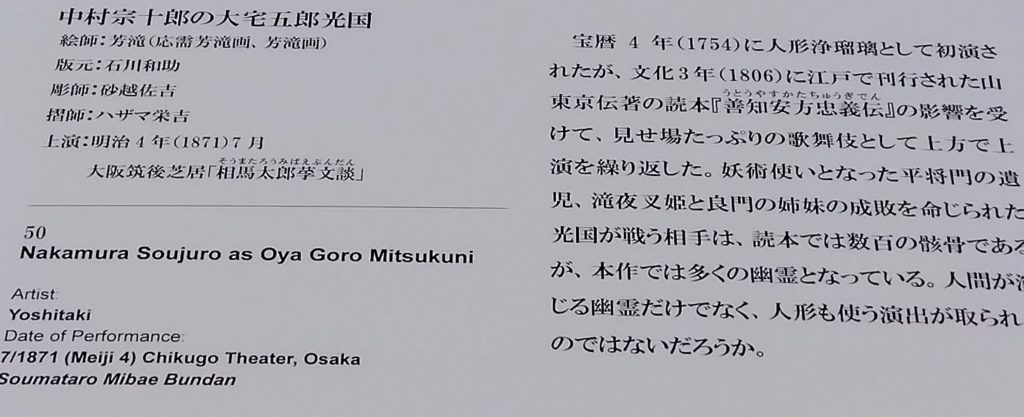 中村宗十郎の大宅五郎光国
絵師：芳滝（応需芳滝画、芳滝画）
版元：石川和助
彫師：砂越佐吉
摺師：ハザマ栄吉
上演：明治４年（1871）７月
そうまたろうみばえぶんだん
大阪筑後芝居「相馬太郎莩文談」
50
Nakamura Soujuro as Oya Goro Mitsukuni
Artist:
Yoshitaki
Date of Performance:
7/1871 (Meiji 4) Chikugo Theater, Osaka
Soumataro Mibae Bundan
宝暦 4 年（1754）に人形浄瑠璃として初演さ
れたが、文化３年（1806）に江戸で刊行された山
うとうやすかたちゅうぎでん
東京伝著の読本『善知安方忠義伝』の影響を受
けて、見せ場たっぷりの歌舞伎として上方で上
演を繰り返した。妖術使いとなった平将門の遺
児、滝夜叉姫と良門の姉妹の成敗を命じられた
光国が戦う相手は、読本では数百の骸骨である
が、本作では多くの幽霊となっている。人間が演
じる幽霊だけでなく、人形も使う演出が取られ
のではないだろうか。